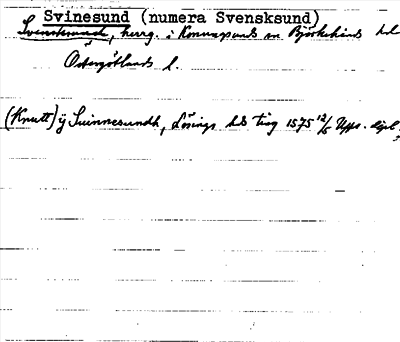 Svinesund (numera Svensksund)
Svensksund, herrg. i Konungsunds sn Björkekinds hd
Östergötlands l.
(Knutt) ÿ Suinnesundh, Lösings hds ting 1575 12/5 Upps. dipl.